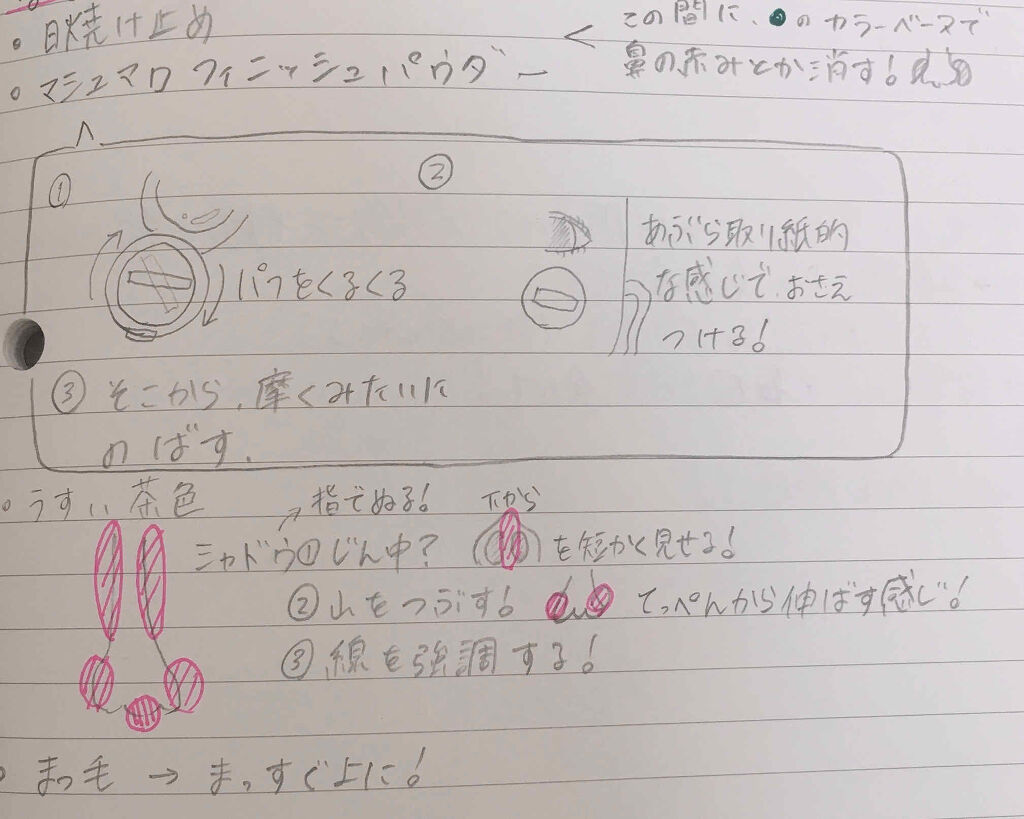 ・日焼け止め
< この間に、●のカラーベースで
鼻の赤みとか消す!
・マシュマロフィニッシュパウダー
①
パフをくるくる
②
あぶら取り紙的
な感じで、おさえ
つける!
③ そこから、摩くみたいに
のばす.
・うすい茶色
→指でぬる!
下から
シャドウ①じん中? を短かく見せる!
②山をつぶす! てっぺんから伸ばす感じ!
③線を強調する!
・まつ毛 → まっすぐ上に!